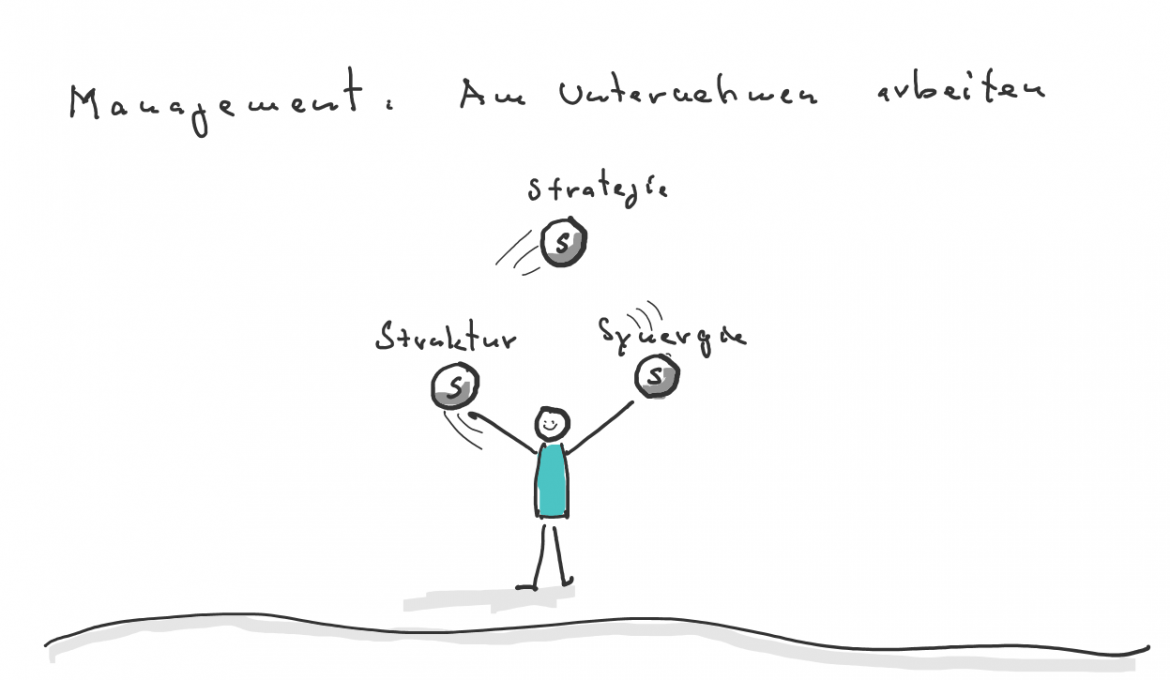 Management: Am Unternehmen arbeiten
Strategie
S
Struktur
Synergie
S
S